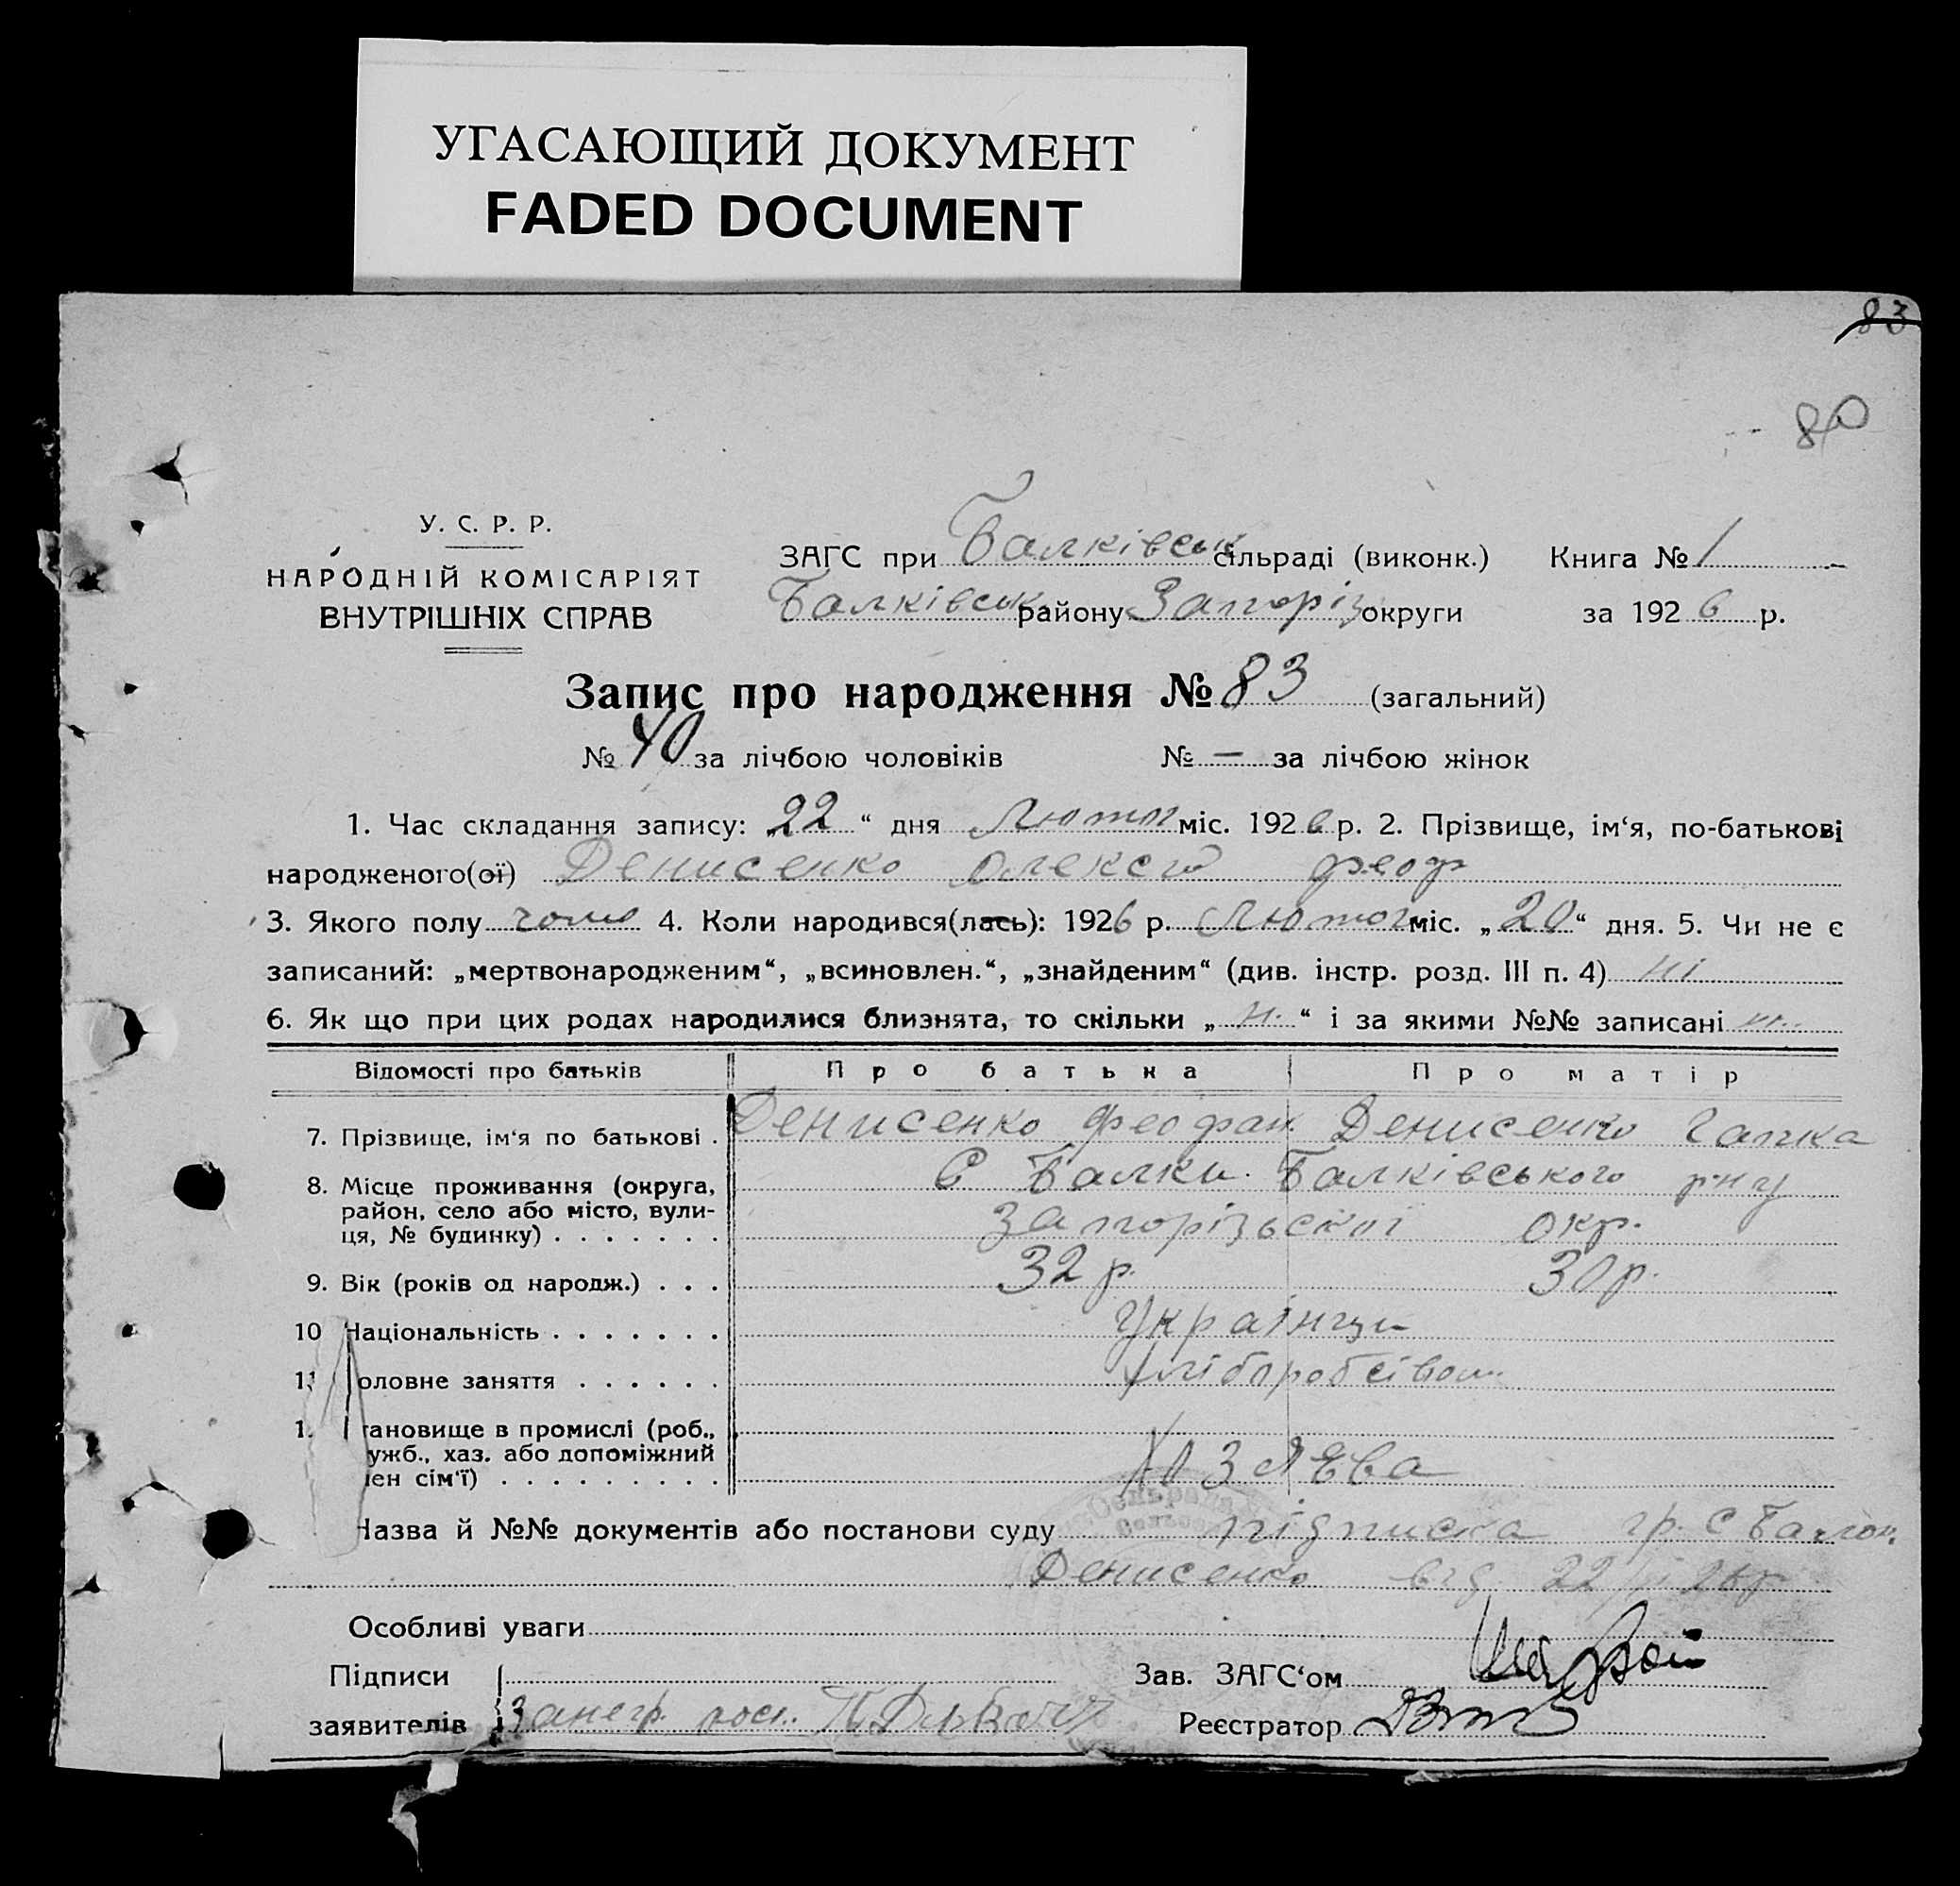 УГАСАЮЩИЙ ДОКУМЕНТ
FADED DOCUMENT
83
80
У. С. Р. Р.
НАРОДНІЙ КОМІСАРІЯТ
ВНУТРІШНІХ СПРАВ
ЗАГС при Балківськ сільраді (виконк.) Книга № 1
Балківськ району Запоріз округи за 1926 р.
Запис про народження № 83 (загальний)
№ 40 за лічбою чоловіків № — за лічбою жінок
1. Час складання запису: „22“ дня Лютог міс. 1926 р. 2. Прізвище, ім‘я, по-батькові
народженого(ої) Денисенко Олексій Феоф
3. Якого полу чоло 4. Коли народився(лась): 1926 р. Лютог міс. „20“ дня. 5. Чи не є
записаний: „мертвонародженим“, „всиновлен.“, „знайденим“ (див. інстр. розд. III п. 4) ні
6. Як що при цих родах народилися близнята, то скільки „н.“ і за якими №№ записані н.
Відомості про батьків Про батька Про матір
7. Прізвище, ім‘я по батькові . Денисенко Феофан Денисенко Гапка
8. Місце проживання (округа, район, село або місто, вули-ця, № будинку) . . . . . . . С Балки Балківського р-ну
Запорізської окр.
9. Вік (років од народж.) . . . 32 р. 30 р.
10 Національність . . . . . . . Українци
11 оловне заняття . . . . . . Хліборобсівом
1. тановище в промислі (роб.,
ужб., хаз. або допоміжний
ен сім‘ї) . . . . . . . . . Хозяева
Назва й №№ документів або постанови суду підписка гр. с Балок
Денисенко від 22/ 26 р
Особливі уваги
Підписи Зав. ЗАГС‘ом
заявителів Занегр. Реєстратор